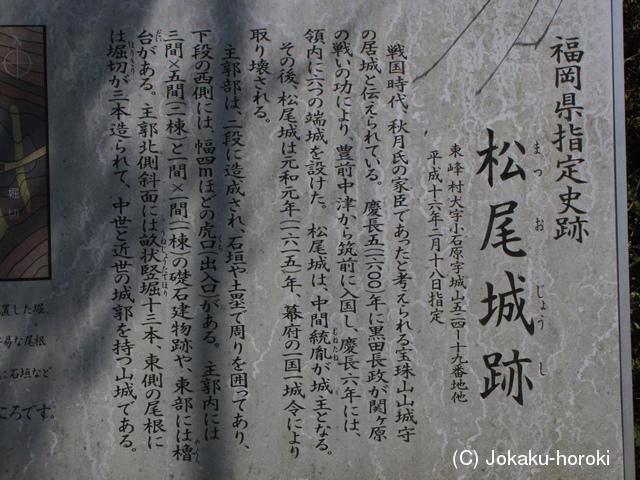 福岡県指定史跡
松尾城跡
まつ お じょう し
東峰村大字小石原字城山五二四ー十九番地他
平成十六年二月十八日指定
戦国時代、秋月氏の家臣であったと考えられる宝珠山山城守
の居城と伝えられている。慶長五(一六〇〇)年に黒田長政が関ヶ原
の戦いの功により、豊前中津から筑前に入国し、慶長六年には、
領内に六つの端城を設けた。松尾城は、中間統胤が城主となる。
その後、松尾城は元和元年(一六一五)年、幕府の一国一城令により
取り壊される。
主郭部は、二段に造成され、石垣や土塁で周りを囲ってあり、
下段の西側には、幅四mほどの虎口(出入口)がある。主郭内には
三間×五間(二棟)と一間×一間(一棟)の礎石建物跡や、東部には櫓
台がある。主郭北側斜面には畝状竪堀十三本、東側の尾根に
は堀切が二本造られて、中世と近世の城郭を持つ山城である。
堀切
置した堀、
易な尾根
に石垣など
ころです。
(C) Jokaku-horoki